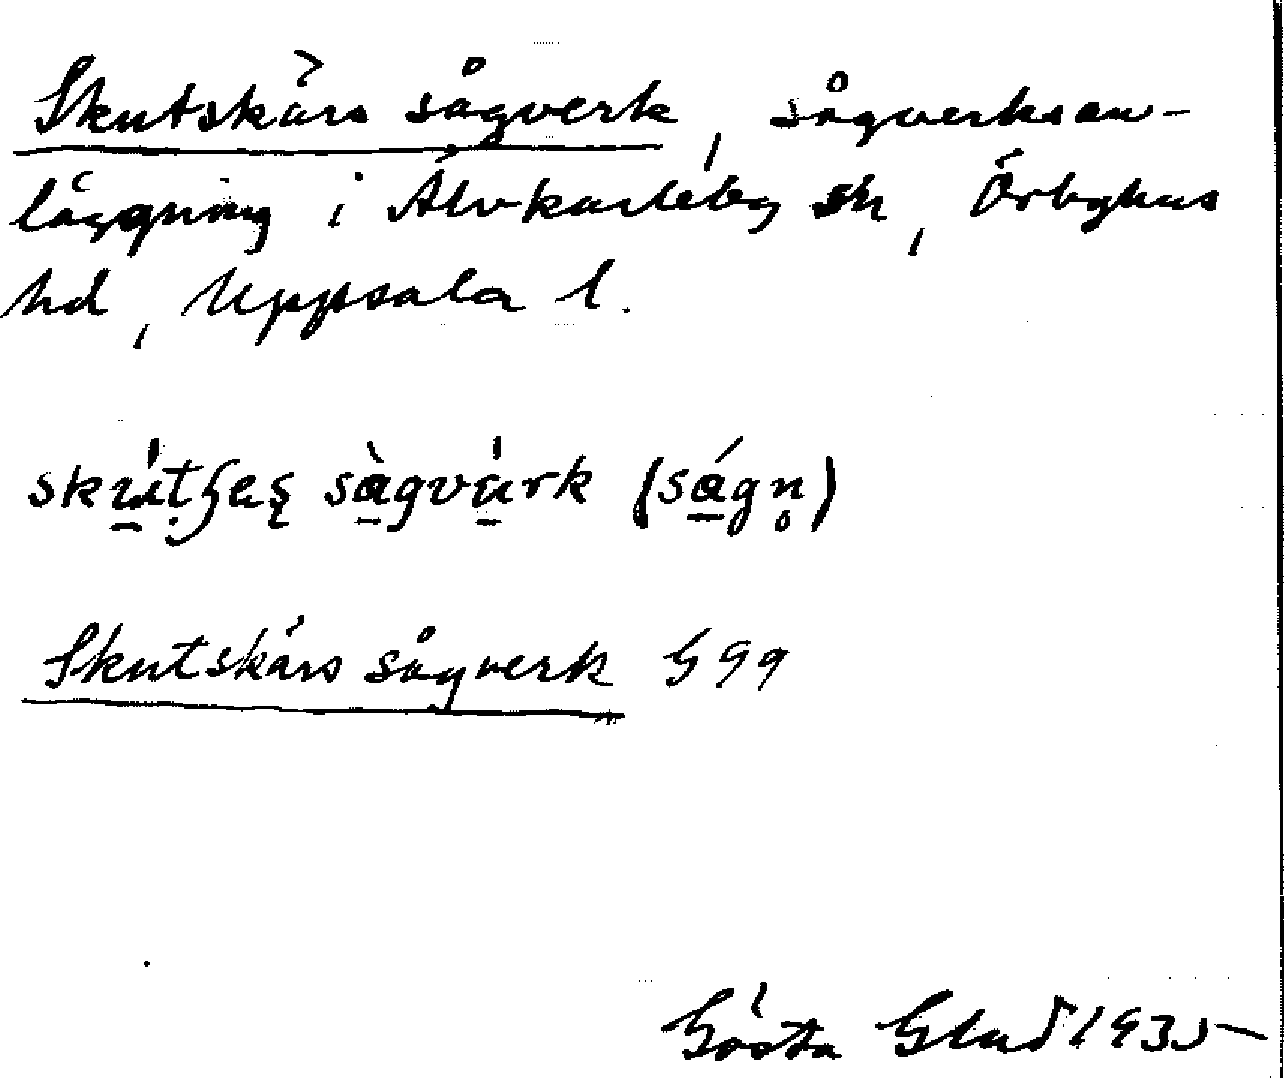 Skutskärs sågverk, sågverksan-
läggning i Älvkarleby sn, Örbyhus
hd, Uppsala l.
sågvärk (sågn̥)
Skutskärs sågverk G99
Gösta Glad 1935